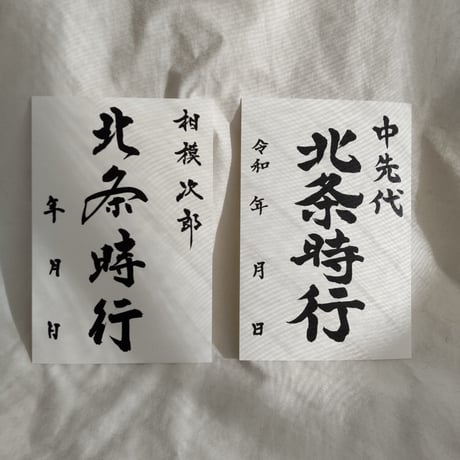 相模次郎
北条時行
年 月 日
中先代
北条時行
令和 年 月 日